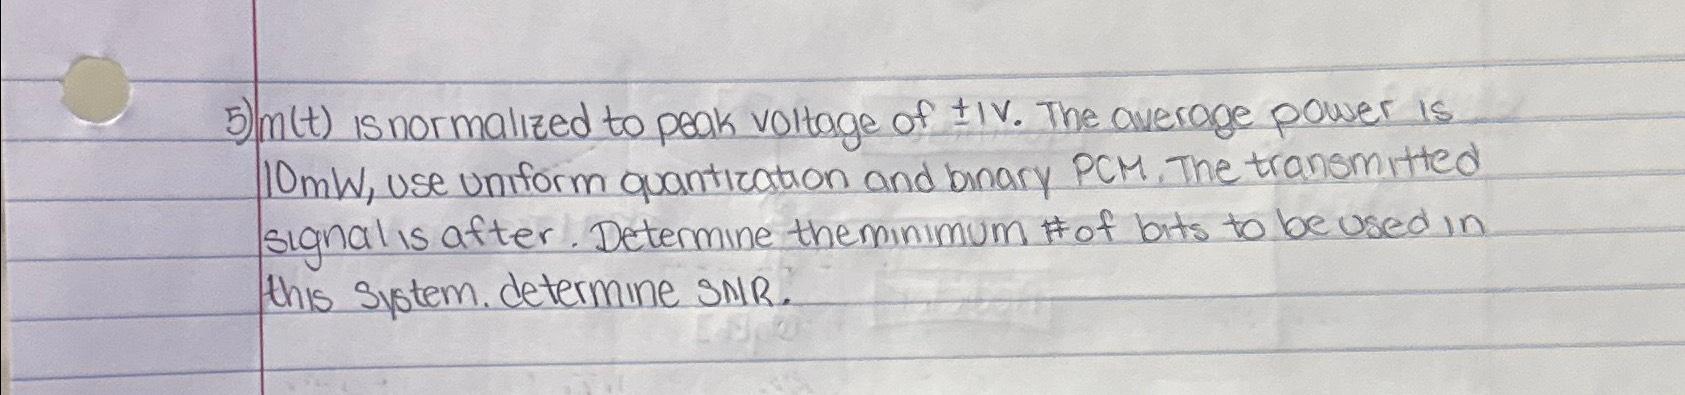 5) m(t) is normalized to peak voltage of ±1V. The average power is
10mW, use uniform quantization and binary PCM. The transmitted
signal is after. Determine the minimum # of bits to be used in
this system. determine SNR.